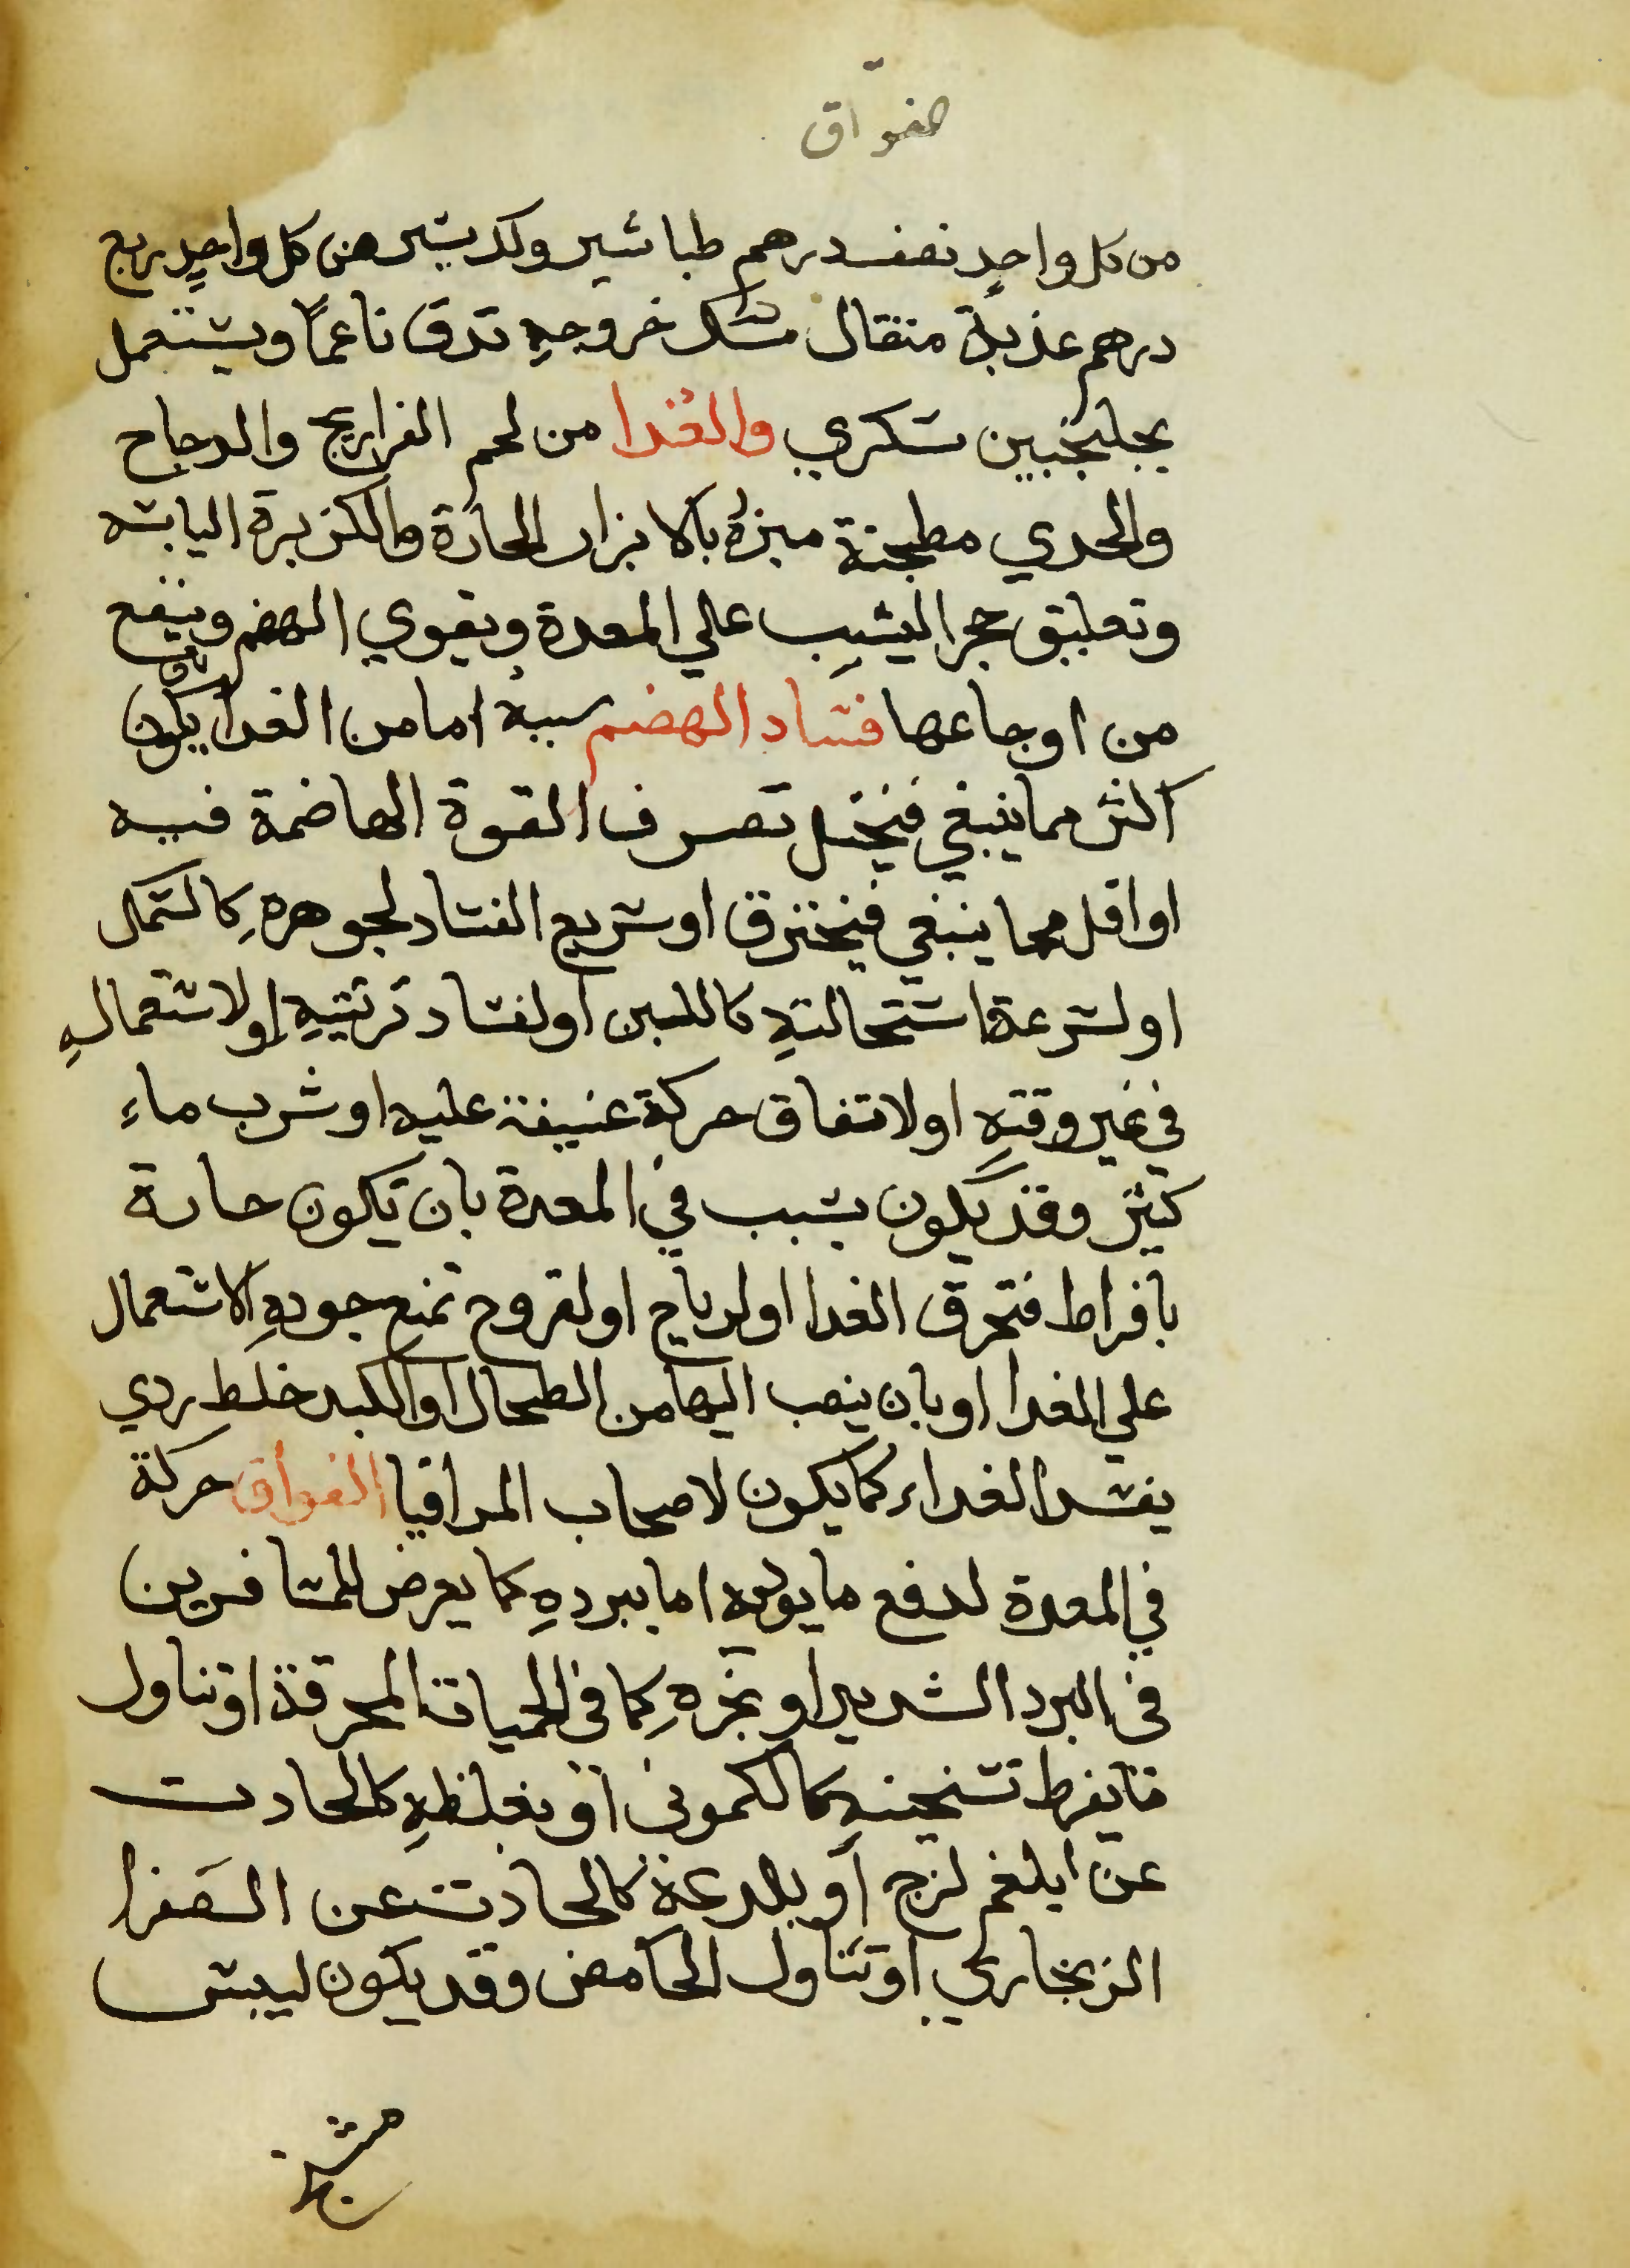 الفواق
من كل واحدٍ نصف درهم طباشير وكد بشير من كل واحدٍ ربع
درهم عذبة مثقال مسك خروجهِ تدق ناعمًا ويستعمل
بجلنجبين سكري والغدا من لحم الفراريج والدجاج
والجدي مطجنة مبزرة بالابزار الحارة والكزبرة اليابسه
وتعليق حجر اليشب علي المعدة ويقوي الهضم وينفع
من اوجاعها فساد الهضم سببه اما من الغدا بان يكون
اكثر مما ينبغي فيختل تصرف القوة الهاضمة فيه
او اقل مما ينبغي فيحترق او سريع الفساد لجوهرهِ كالسمك
او لسرعة استحالتهِ كاللبن او لفساد ترتيبهِ او لاستعمالهِ
في غير وقتهِ او لاتفاق حركة عنيفة عليه او شرب ماء
كثير وقد يكون بسبب في المعدة بان تكون حارة
بافراط فتحرق الغدا او لرياح او لقروح تمنع جودهِ الاشتمال
علي الغدا او بان ينصب اليها من الطحال او الكبد خلط ردي
يفسد الغداء كما يكون لاصحاب المراقيا الفواق حركة
في المعدة لدفع ما يوذيه اما ببردهِ كما يعرض للمسافرين
في البرد الشديد او بحرهِ كما في الحميات المحرقة او تناول
ما يفرط تسخينهِ كالكموني او بغلظهِ كالحادث
عن ابلغم لزج او بلدعة كالحادث عن السفرا
الزنجاري او تناول الحامض وقد يكون ليبس